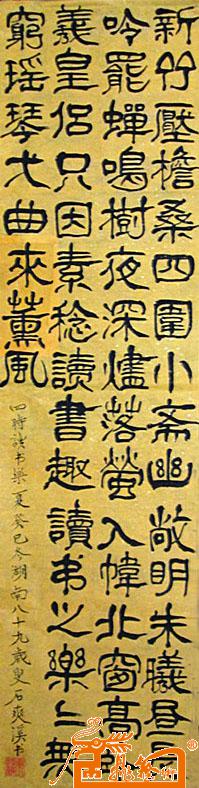 新竹壓檐桑四圍小斋幽敞明朱曦昼長
吟罷蟬鳴樹夜深燼落螢入幃北窗高卧
羲皇侶只因素稔讀書趣讀书之樂〻無
窮瑶琴弋曲来薰風
四時读书樂夏癸巳冬湖南八十九歲叟石爽溪书